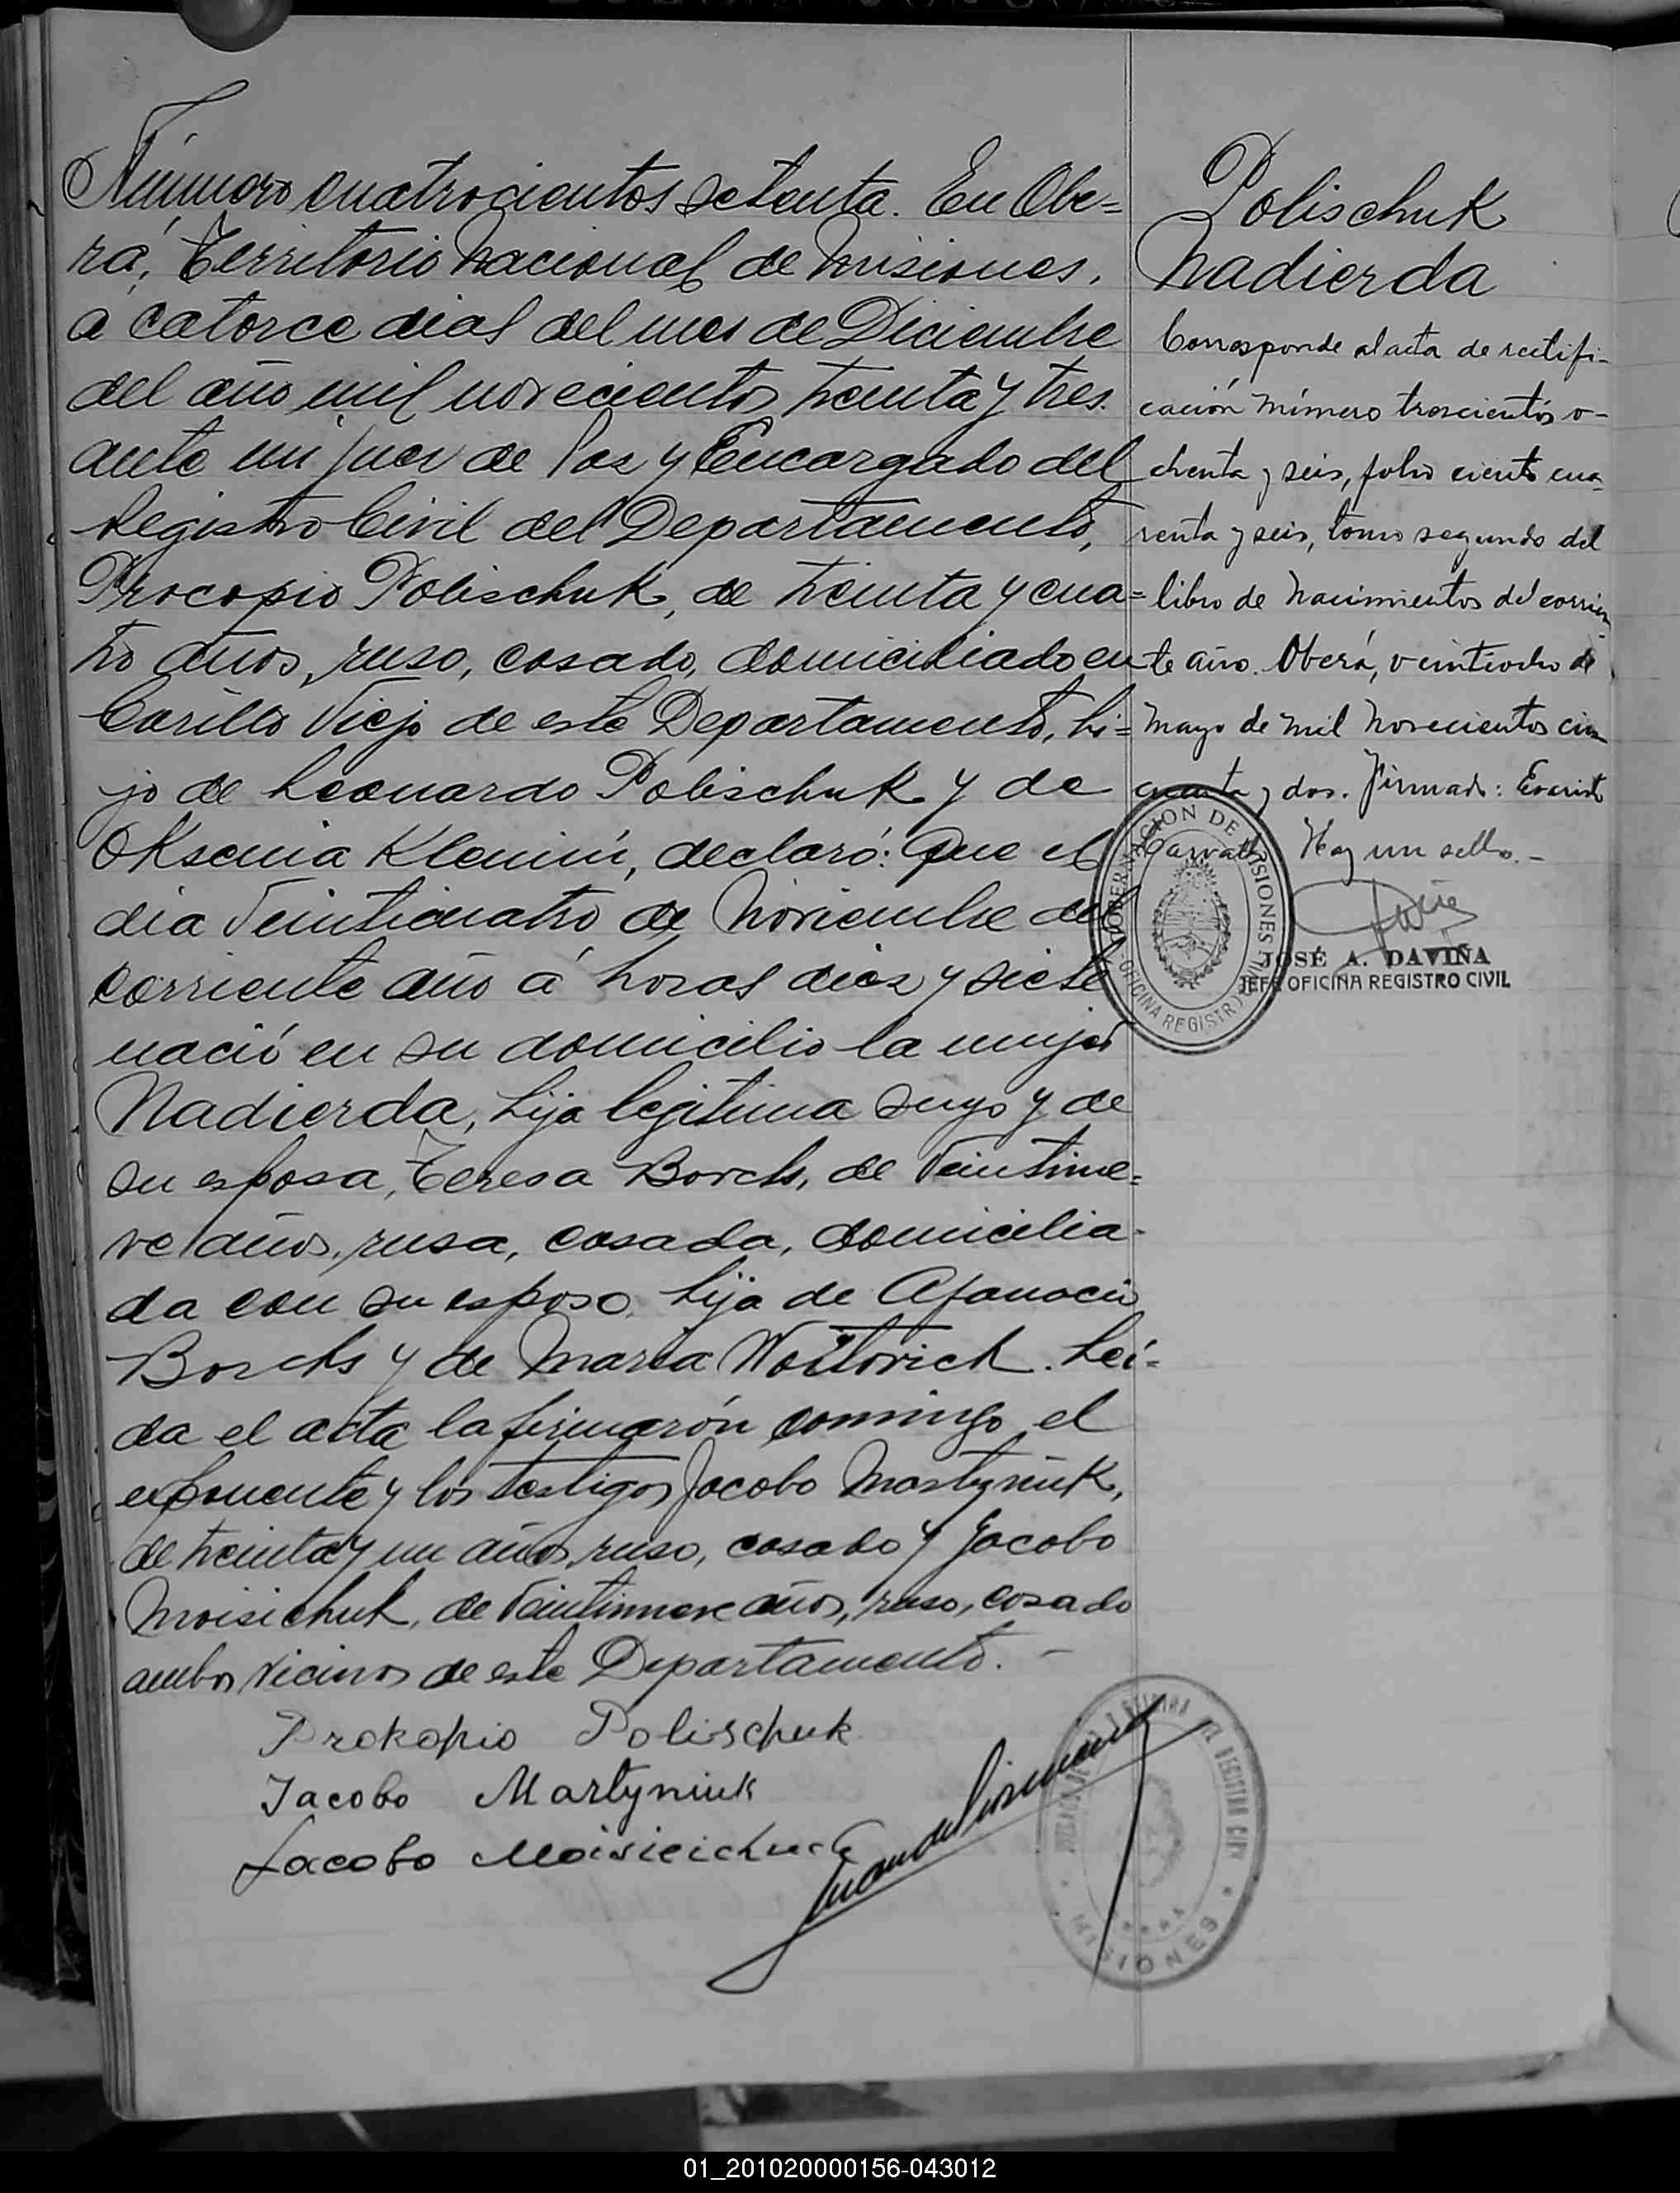 Número cuatrocientos setenta. En Obe=
rá, Territorio Nacional de Misiones,
a catorce dias del mes de Diciembre
del año mil novecientos treinta y tres.
ante mi Juez de Paz y Encargado del
Registro Civil del Departamento,
Procopio Polischuk, de treinta y cua=
tro años, ruso, casado, domiciliado en
Cerillo Viejo de este Departamento, hi=
jo de Leonardo Polischuk y de
Oksenia Klemin, declaró: Que el
dia Veinticuatro de Noviembre del
corriente año á horas diez y siete
nació en su domicilio la mujer
Nadierda, hija legitima suya y de
su esposa, Teresa Borchs, de Veintinue=
ve años, rusa, casada, domicilia-
da con su esposo, hija de Afanacio
Borchs y de Maria Woitovich. Lei=
da el acta la firmarón conmigo el
exponente y los testigos Jacobo Martyniuk,
de treinta y un años, ruso, casado y Jacobo
Moisichuk, de Veintinueve años, ruso, casado
ambos vecinos de este Departamento. -
Prokopio Polischuk
Jacobo Martyniuk
Jacobo
MISIONES
Polischuk
Nadierda
Corresponde al acta de rectifi-
cación número trescientos o-
chenta y seis, folio ciento cua-
renta y seis, tomo segundo del
libro de Nacimientos del corrien-
te año. Oberá, veintiocho de
mayo de mil novecientos cin-
cuenta y dos. Firmado: Evaristo
Hay un sello.-
GOBERNACION DE MISIONES
OFICINA REGISTRO CIVIL
JOSÉ A. DAVIÑA
JEFE OFICINA REGISTRO CIVIL
01_201020000156-043012